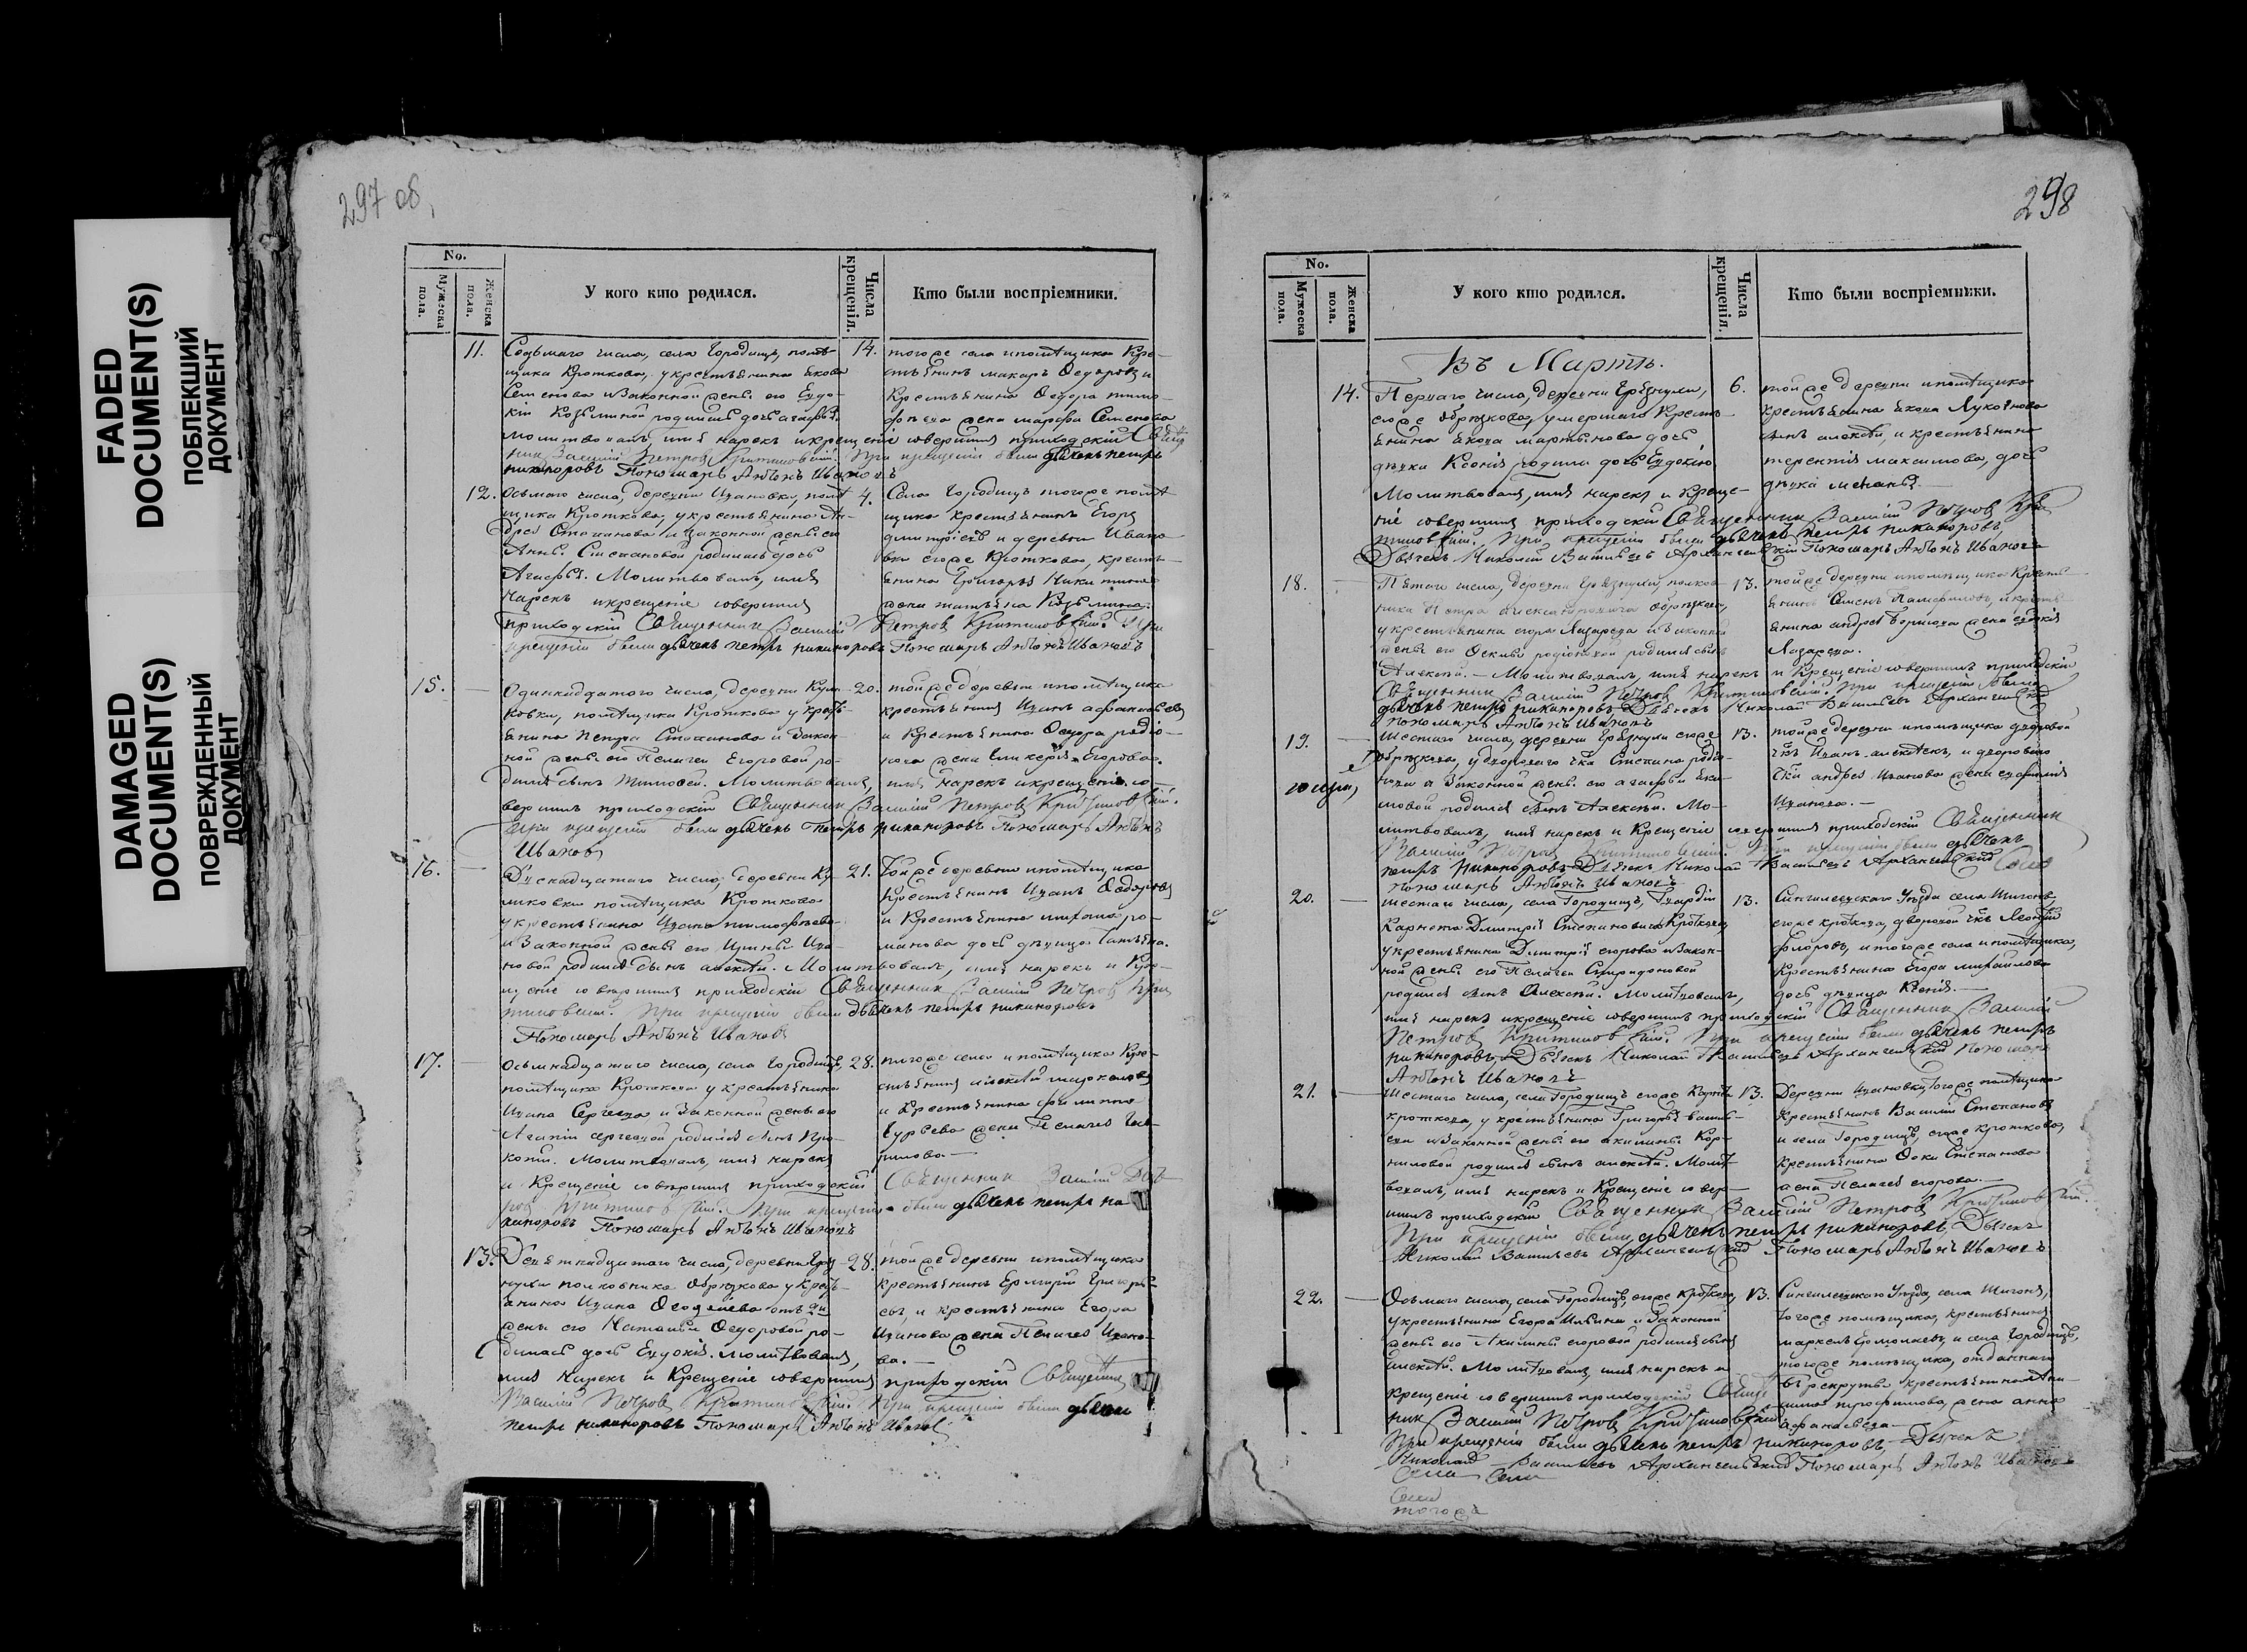 FADED
DOCUMENT(S)
ПОБЛЕКШИЙ
ДОКУМЕНТ
DAMAGED
DOCUMENT(S)
ПОВРЕЖДЕННЫЙ
ДОКУМЕНТ
297 об.
No.
Мужеска пола.
Женска пола.
У кого кто родился.
Числа крещенія.
Кто были воспріемники.
11.
Седьмаго числа, села Городищъ, помѣ-
щика Кроткова, у крестьянина Якова
Семенова и законной жены его Евдо-
кіи Козьминой родилась дочь Агафья.
Молитвовалъ, имя нарекъ и крещеніе совершилъ приходскій
Василій Петровъ При крещеніи были дьячекъ Петръ
Никаноровъ Пономарь Антонъ Ивановъ
14.
тогоже села и помѣщика Кре-
стьянинъ Макаръ Ѳедоровъ и
Крестьянина Ѳедора Тимо-
фѣева жена Марфа Семенова
12.
Осьмаго числа, деревни Ивановки, помѣ-
щика Кроткова, у крестьянина Ан-
дрея Степанова и законной жены его
Анны Степановой родилась дочь
Агафья. Молитвовалъ, имя
нарекъ и крещеніе совершилъ
приходскій Священникъ Василій Петровъ При
крещеніи были дьячекъ Петръ Никаноровъ Пономарь Антонъ Ивановъ
4.
Села Городищъ тогоже помѣ-
щика крестьянинъ Егоръ
Дмитріевъ и деревни Ивано-
вки егоже Кроткова, кресть-
янина Григорья Никитина
жена Татьяна Козьмина.
15.
Одиннадцатаго числа, деревни Кули-
ковки, помѣщика Кроткова у кресть-
янина Петра Степанова и закон-
ной жены его Пелагеи Егоровой ро-
дился сынъ Тимофей. Молитвовалъ, имя нарекъ и крещеніе со-
вершилъ приходскій Священникъ Василій Петровъ
При крещеніи были дьячекъ Петръ Никаноровъ Пономарь Антонъ
Ивановъ
20.
тойже деревни и помѣщика
крестьянинъ Иванъ Афанасьевъ
и крестьянина Ѳедора Родіо-
нова жена Гликерія Егорова.
16.
Двенадцатаго числа, деревни Ку-
ликовки помѣщика Кроткова
у крестьянина Ивана Тимофѣева
и законной жены его Ирины Ива-
новой родился сынъ Алексѣй. Молитвовалъ, имя нарекъ и Кре-
щеніе совершилъ приходскій Священникъ Василій Петровъ
При крещеніи были дьячекъ Петръ Никаноровъ
Пономарь Антонъ Ивановъ
21.
Тойже деревни и помѣщика
Крестьянинъ Иванъ Ѳедоровъ
и Крестьянина Ро-
манова дочь дѣвица Татьяна.
17.
Осьмнадцатаго числа, села Городищъ,
помѣщика Кроткова у крестьянина
Ивана Сергеева и законной жены его
Агапіи Сергеевой родился сынъ Про-
копій. Молитвовалъ, имя нарекъ
и Крещеніе совершилъ приходскій Священникъ Василій Пет-
ровъ При крещеніи были дьячекъ Петръ Ни
каноровъ Пономарь Антонъ Ивановъ
28.
тогоже села и помѣщика Кре-
стьянинъ Алексѣй
и Крестьянина Филиппа
Гурьева жена Пелагея Гав-
рилова.—
13.
Девятнадцатаго числа, деревни Гряз-
нухи полковника Обрѣзкова у кресть-
янина Ивана
жены его Натальи Ѳедоровой ро-
дилась дочь Евдокія. Молитвовалъ,
имя нарекъ и Крещеніе совершилъ приходскій Священникъ
Василій Петровъ При крещеніи были дьячекъ
Петръ Никаноровъ Пономарь Антонъ Ивановъ
28.
тойже деревни и помѣщика
крестьянинъ Ермилъ Григорь-
евъ, и крестьянина Егора
Иванова жена Пелагея Ивано-
ва.—
298
No.
Мужеска пола.
Женска пола.
У кого кто родился.
Числа крещенія.
Кто были воспріемники.
Въ Мартѣ.
14.
Перваго числа, деревни Грязнухи,
егоже Обрѣзкова, умершаго Кресть-
янина Якова Мартынова дочь
дѣвка Ксенія родила дочь Евдокію
Молитвовалъ, имя нарекъ и Креще-
ніе совершилъ приходскій Священникъ Василій Петровъ
При крещеніи были дьячекъ Петръ Никаноровъ,
Дьячекъ Николай Васильевъ Архангельскій Пономарь Антонъ Ивановъ
6.
тойже деревни и помѣщика
крестьянина Якова Лукоянова
сынъ Алексѣй, и крестьянина
Терентія Максимова, дочь
дѣвка
18.
Пятаго числа, деревни Грязнухи, полков-
ника Петра Александровича Обрѣзкова,
у крестьянина Егора Лазарева и законной
жены его Родіоновой родился сынъ
Алексѣй.— Молитвовалъ, имя нарекъ и Крещеніе совершилъ приходскій
Священникъ Василій Петровъ При крещеніи были
дьячекъ Петръ Никаноровъ Дьячекъ Николай Васильевъ Архангельскій
Пономарь Антонъ Ивановъ
13.
тойже деревни и помѣщика Кресть-
янинъ Семенъ и кресть-
янина Андрея жена
Лазарева.
19.
Шестаго числа, деревни Грязнухи егоже
Обрѣзкова, у двороваго Степана Родіо-
нова и законной жены его Агафьи Яки-
мовой родился сынъ Алексѣй. Мо-
литвовалъ, имя нарекъ и Крещеніе совершилъ приходскій Священникъ
Василій Петровъ При крещеніи были дьячекъ
Петръ Никаноровъ Дьячекъ Николай Васильевъ Архангельскій
Пономарь Антонъ Ивановъ
13.
тойже деревни и помѣщика дворовой
Иванъ Алексѣевъ, и двороваго
Андрея Иванова жена
Иванова.—
20.
Шестаго числа, села Городищъ, Гвардіи
Корнета Дмитрія Степановича Кроткова
у крестьянина Дмитрія Егорова и закон-
ной жены его Пелагеи Спиридоновой
родился сынъ Алексѣй. Молитвовалъ,
имя нарекъ и крещеніе совершилъ приходскій Священникъ Василій
Петровъ При крещеніи были дьячекъ Петръ
Никаноровъ, Дьячекъ Николай Васильевъ Архангельскій Пономарь
Антонъ Ивановъ
13.
Сингилеевскаго Уѣзда села Шигонъ,
егоже Кроткова, дворовой Леонтій
Фроловъ, и тогоже села и помѣщика,
Крестьянина Егора Михайлова
дочь дѣвица Ксенія.—
21.
Шестаго числа, села Городищъ егоже
Кроткова, у крестьянина Григорья Василь-
ева и законной жены его Акилины Кор-
ниловой родился сынъ Алексѣй. Молит-
вовалъ, имя нарекъ и Крещеніе совер-
шилъ приходскій Священникъ Василій Петровъ
При крещеніи были дьячекъ Петръ Никаноровъ, Дьячекъ
Николай Васильевъ Архангельскій Пономарь Антонъ Ивановъ
13.
Деревни Ивановки, тогоже помѣщика
Крестьянинъ Василій Степановъ
и села Городищъ, егоже Кроткова,
крестьянина Степанова
жена Пелагея Егорова.—
22.
Осьмаго числа, села Городищъ егоже Кроткова,
у крестьянина Егора Ильина и законной
жены его Акилины Егоровой родился сынъ
Алексѣй. Молитвовалъ, имя нарекъ и
крещеніе совершилъ приходскій Священ-
никъ Василій Петровъ
При крещеніи были дьячекъ Петръ Никаноровъ, Дьячекъ
Николай Васильевъ Архангельскій Пономарь Антонъ Ивановъ
13.
Сингилеевскаго Уѣзда, села Шигонъ,
тогоже помѣщика, крестьянинъ
Маркелъ Ермолаевъ, и села Городищъ,
тогоже помѣщика, отданнаго
въ рекруты крестьянина
Трофимова, жена Анна
Афанасьева.—
Села Села
тогоже